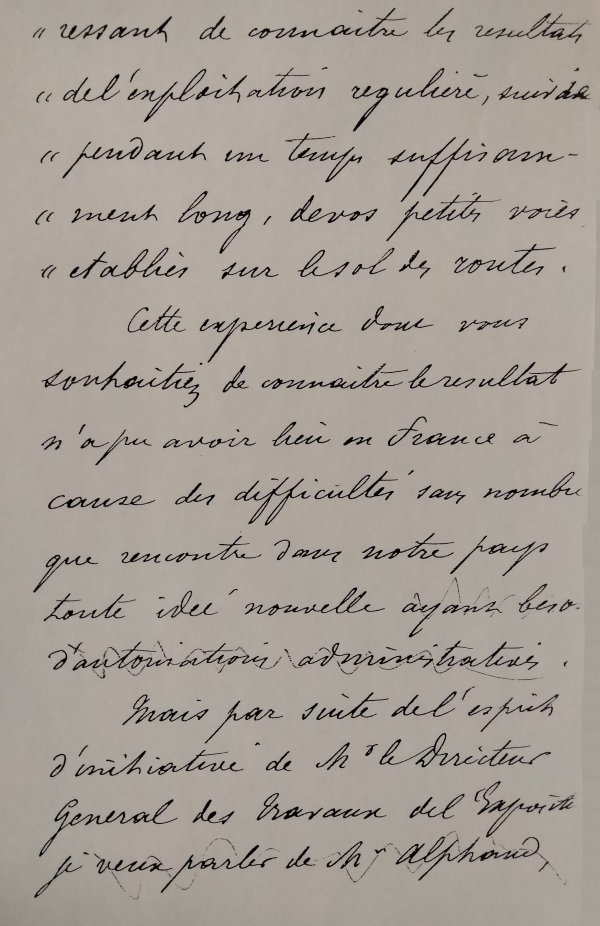 " ressant de connaitre les resultats
" de l'exploitation reguliére, suivie
" pendant un temps suffisam-
" ment long, de vos petites voies
" etablies sur le sol des routes.
Cette experience dont vous
souhaitiez de connaitre le resultat
n'a pu avoir lieu en France à
cause des difficultés sans nombre
que rencontre dans notre pays
toute ideé nouvelle ayant beso
d'autorisations administratives.
Mais par suite de l'esprit
d'initiative de Mr le Directeur
General des Travaux de l'Exposit
je veux parler de Mr Alphand,